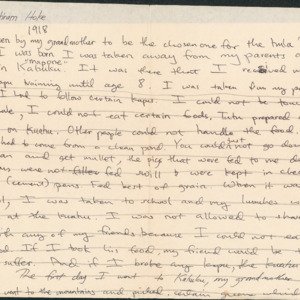 Hiram Hake
1918
en by my grandmother to be the chosen one for the hula
I was born I was taken away from my parents
"mappae"
in Kahuku. It was there that I received
training until age 8. I was taken from my par
I had to follow certain kapus. I could not be touc
, I could not eat certain foods, Tutu prepared
on Kuehu. Other people could not handle the food
had to come from a clean pond. You couldn't just go down
and get mullet, the pigs that were fed to me d
were not fed swill & were kept in clea
(cement) pens. Fed best of grain. When it was
, I was taken to school and my lunches we
at the kuahu. I was not allowed to shar
with any of my friends because I could not
food. If I took his food, my friend would be
suffer. And if I broke any kapu, the
The first day I went to Kahuku, my grandmother
went to the mountains and picked certain greens which